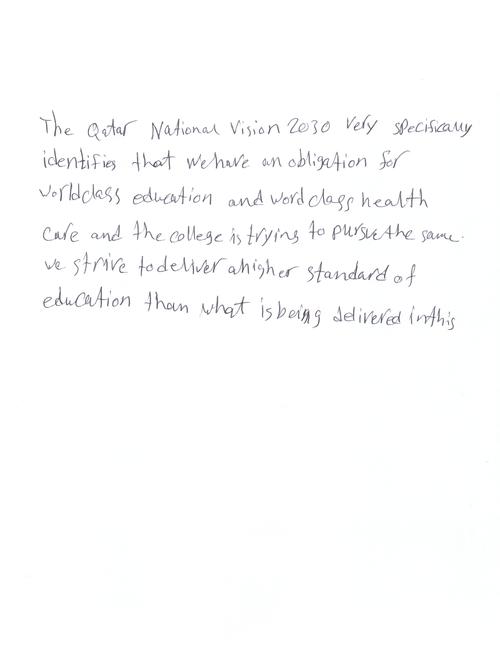 The Qatar National Vision 2030 Very specifically
identifies that we have an obligation for
worldclass education and word class health
care and the college is trying to pursue the same.
we strive to deliver a higher standard of
education than what is being delivered in this